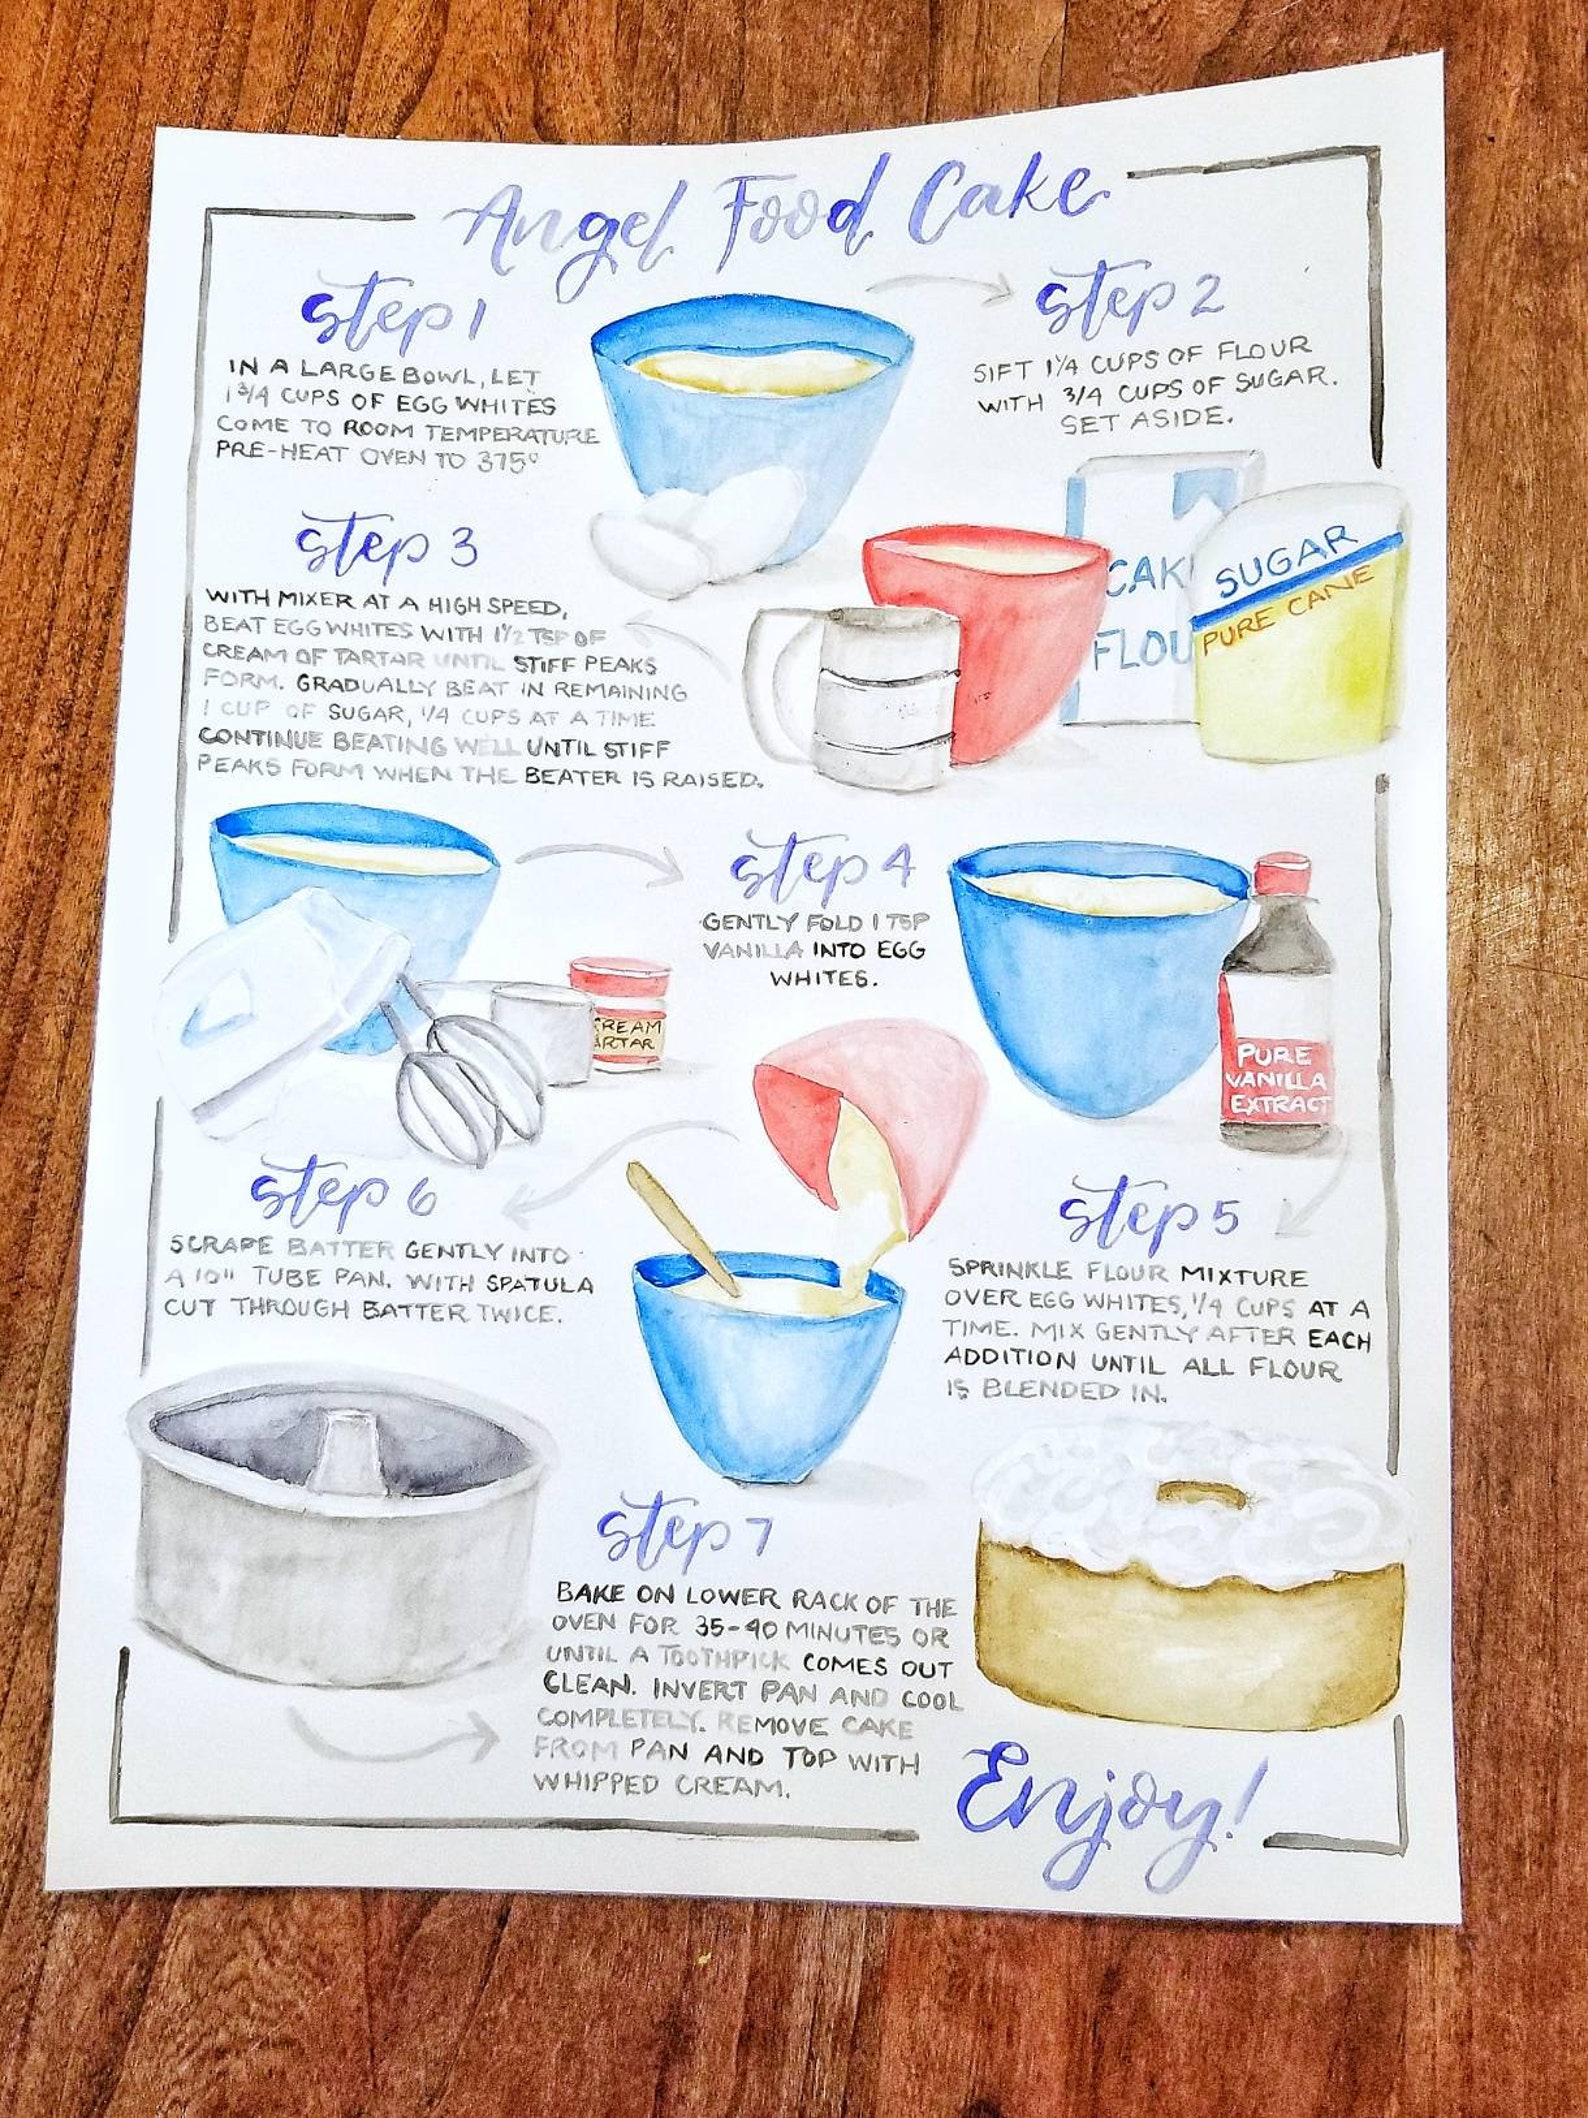 Angel Food Cake
Step 1
IN A LARGE BOWL, LET
1 3/4 CUPS OF EGG WHITES
COME TO ROOM TEMPERATURE
PRE-HEAT OVEN TO 375°
Step 2
SIFT 1 1/4 CUPS OF FLOUR
WITH 3/4 CUPS OF SUGAR.
SET ASIDE.
CAK
FLOU
SUGAR
PURE CANE
Step 3
WITH MIXER AT A HIGH SPEED,
BEAT EGG WHITES WITH 1 1/2 TSP OF
CREAM OF TARTAR UNTIL STIFF PEAKS
FORM. GRADUALLY BEAT IN REMAINING
1 CUP OF SUGAR, 1/4 CUPS AT A TIME
CONTINUE BEATING WELL UNTIL STIFF
PEAKS FORM WHEN THE BEATER IS RAISED.
CREAM
ARTAR
Step 4
GENTLY FOLD 1 TSP
VANILLA INTO EGG
WHITES.
PURE
VANILLA
EXTRACT
Step 5
SPRINKLE FLOUR MIXTURE
OVER EGG WHITES, 1/4 CUPS AT A
TIME. MIX GENTLY AFTER EACH
ADDITION UNTIL ALL FLOUR
IS BLENDED IN.
Step 6
SCRAPE BATTER GENTLY INTO
A 10" TUBE PAN. WITH SPATULA
CUT THROUGH BATTER TWICE.
Step 7
BAKE ON LOWER RACK OF THE
OVEN FOR 35-40 MINUTES OR
UNTIL A TOOTHPICK COMES OUT
CLEAN. INVERT PAN AND COOL
COMPLETELY. REMOVE CAKE
FROM PAN AND TOP WITH
WHIPPED CREAM.
Enjoy!